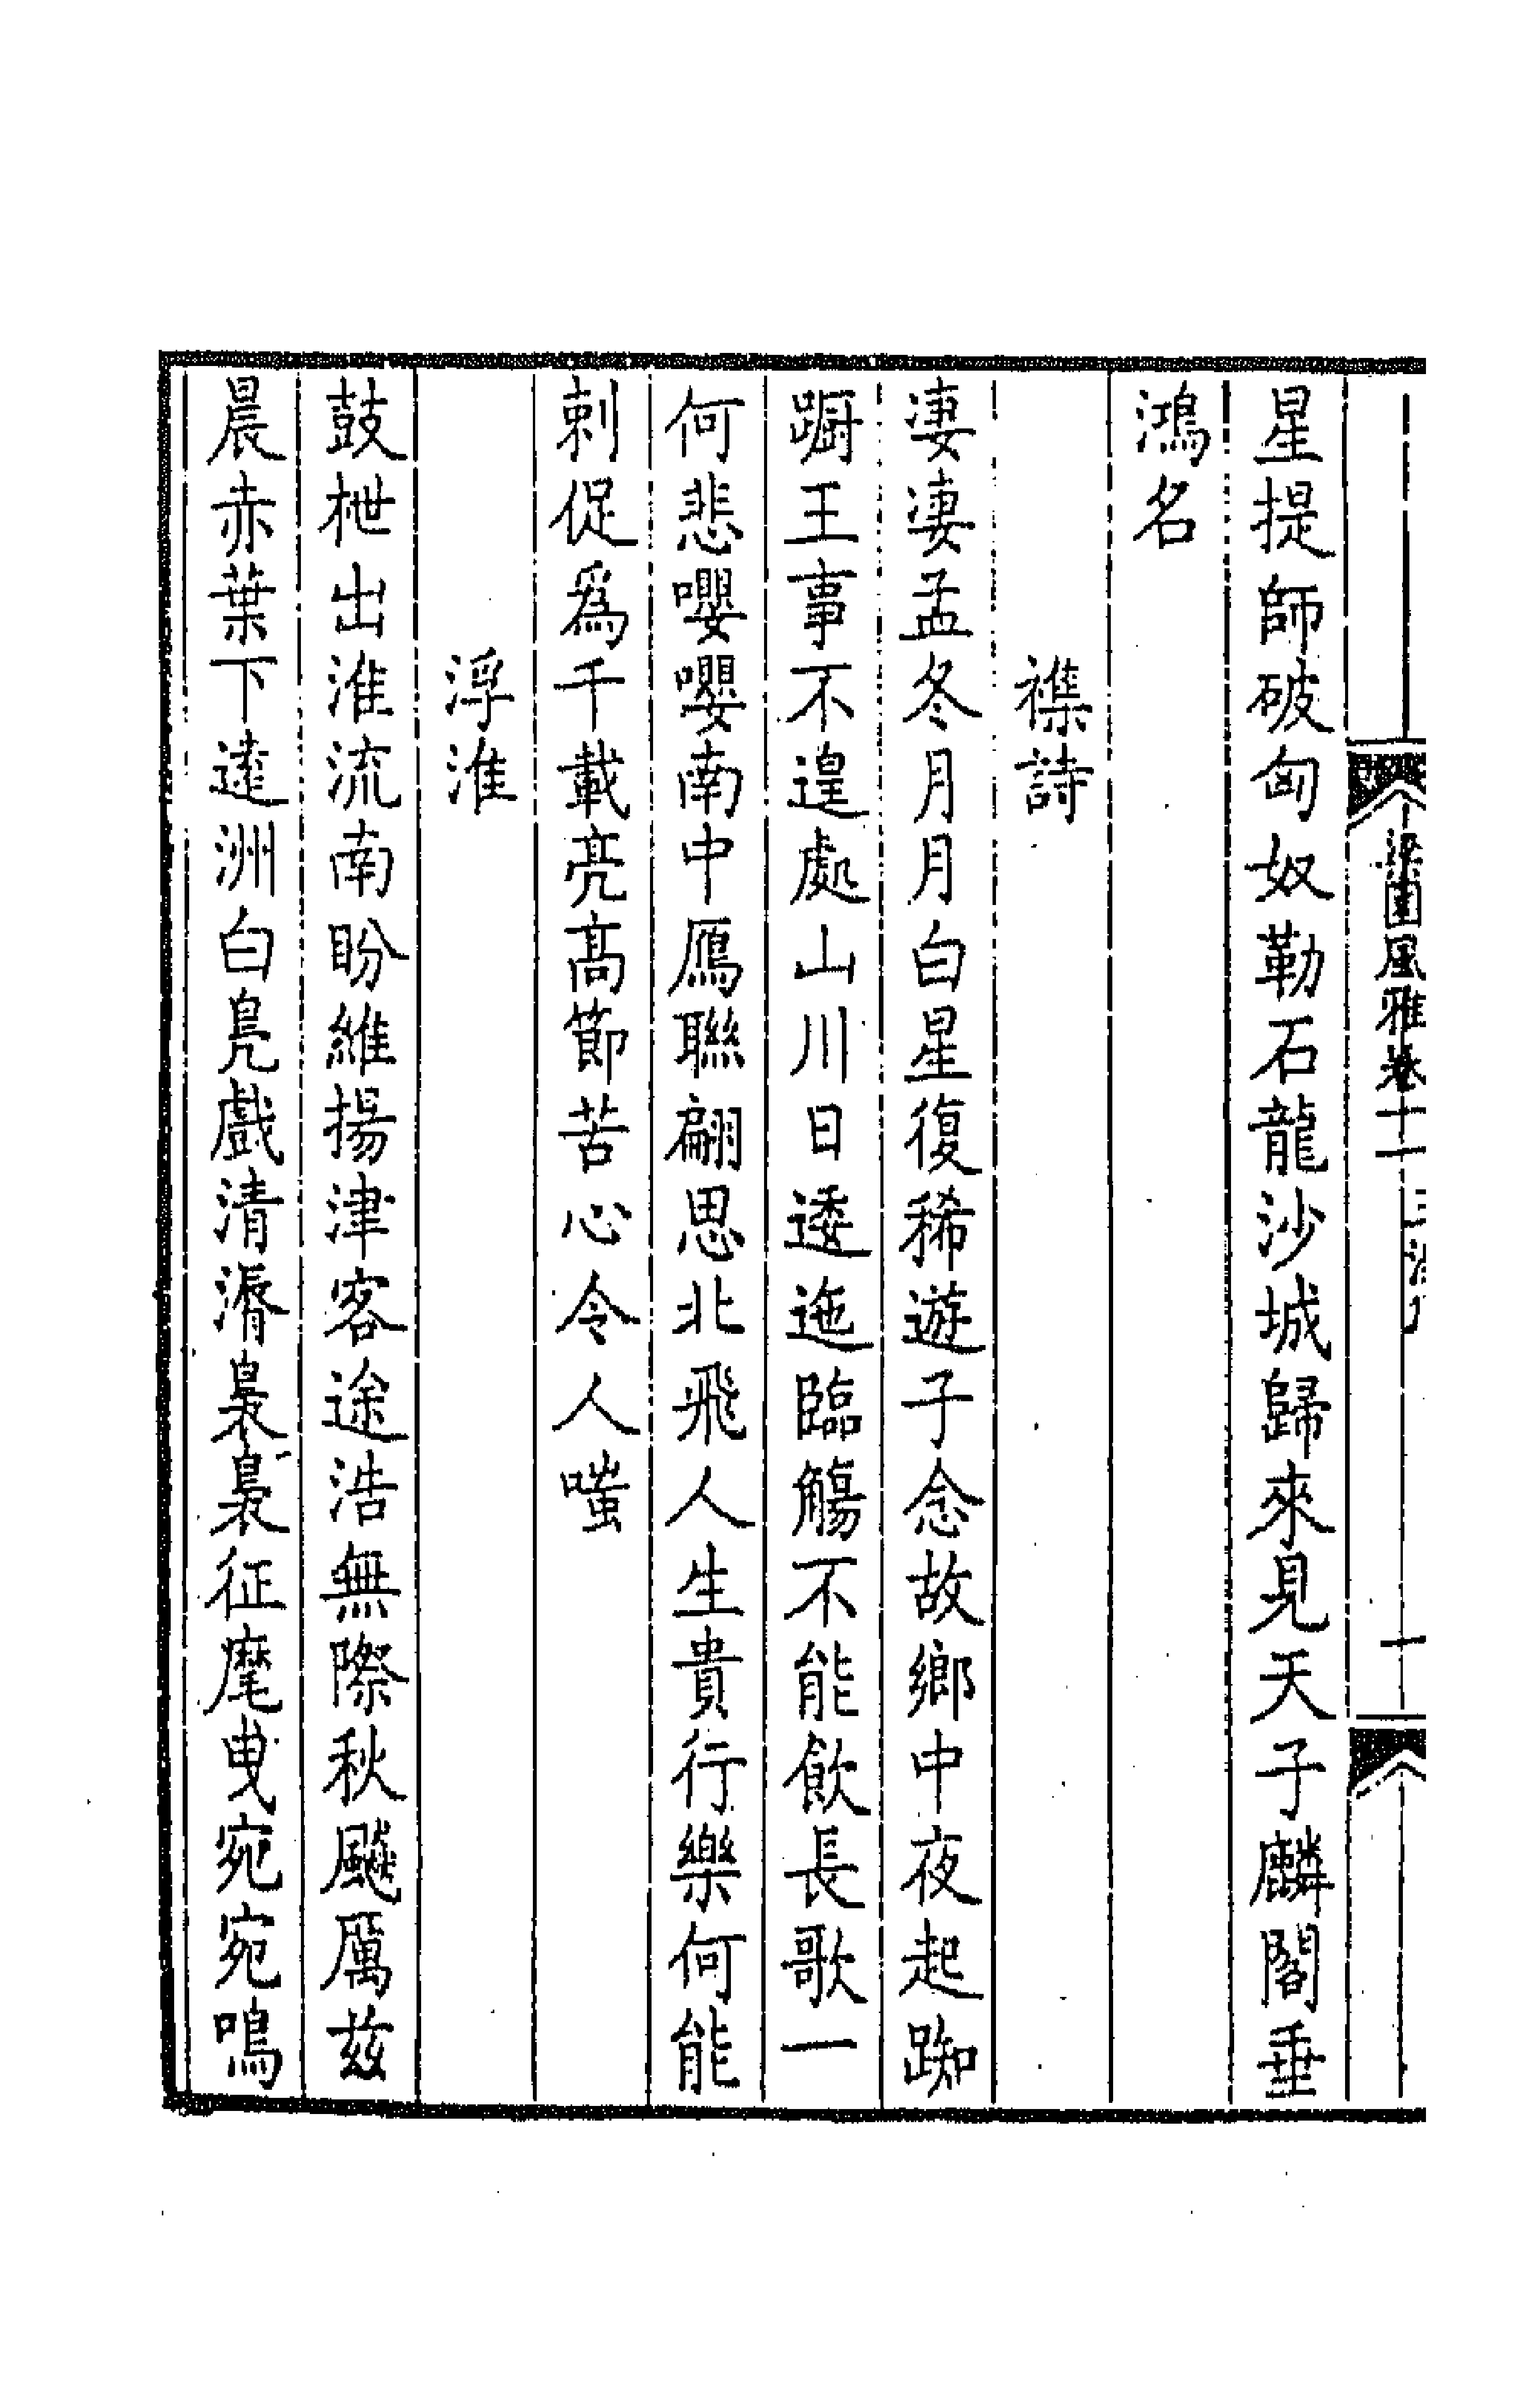 梁園風雅卷十一
十
星提師破匈奴勒石龍沙城歸來見天子麟閣垂
鴻名
襍詩
淒淒孟冬月月白星復稀遊子念故鄉中夜起踟
蹰王事不遑處山川日逶迤臨觴不能飲長歌一
何悲嚶嚶南中鴈聯翩思北飛人生貴行樂何能
刺促爲千載亮高節苦心令人嗤
浮淮
鼓枻出淮流南盼維揚津客途浩無際秋飈厲茲
晨赤葉下遠洲白鳧戲清漘裊裊征麾曳宛宛鳴